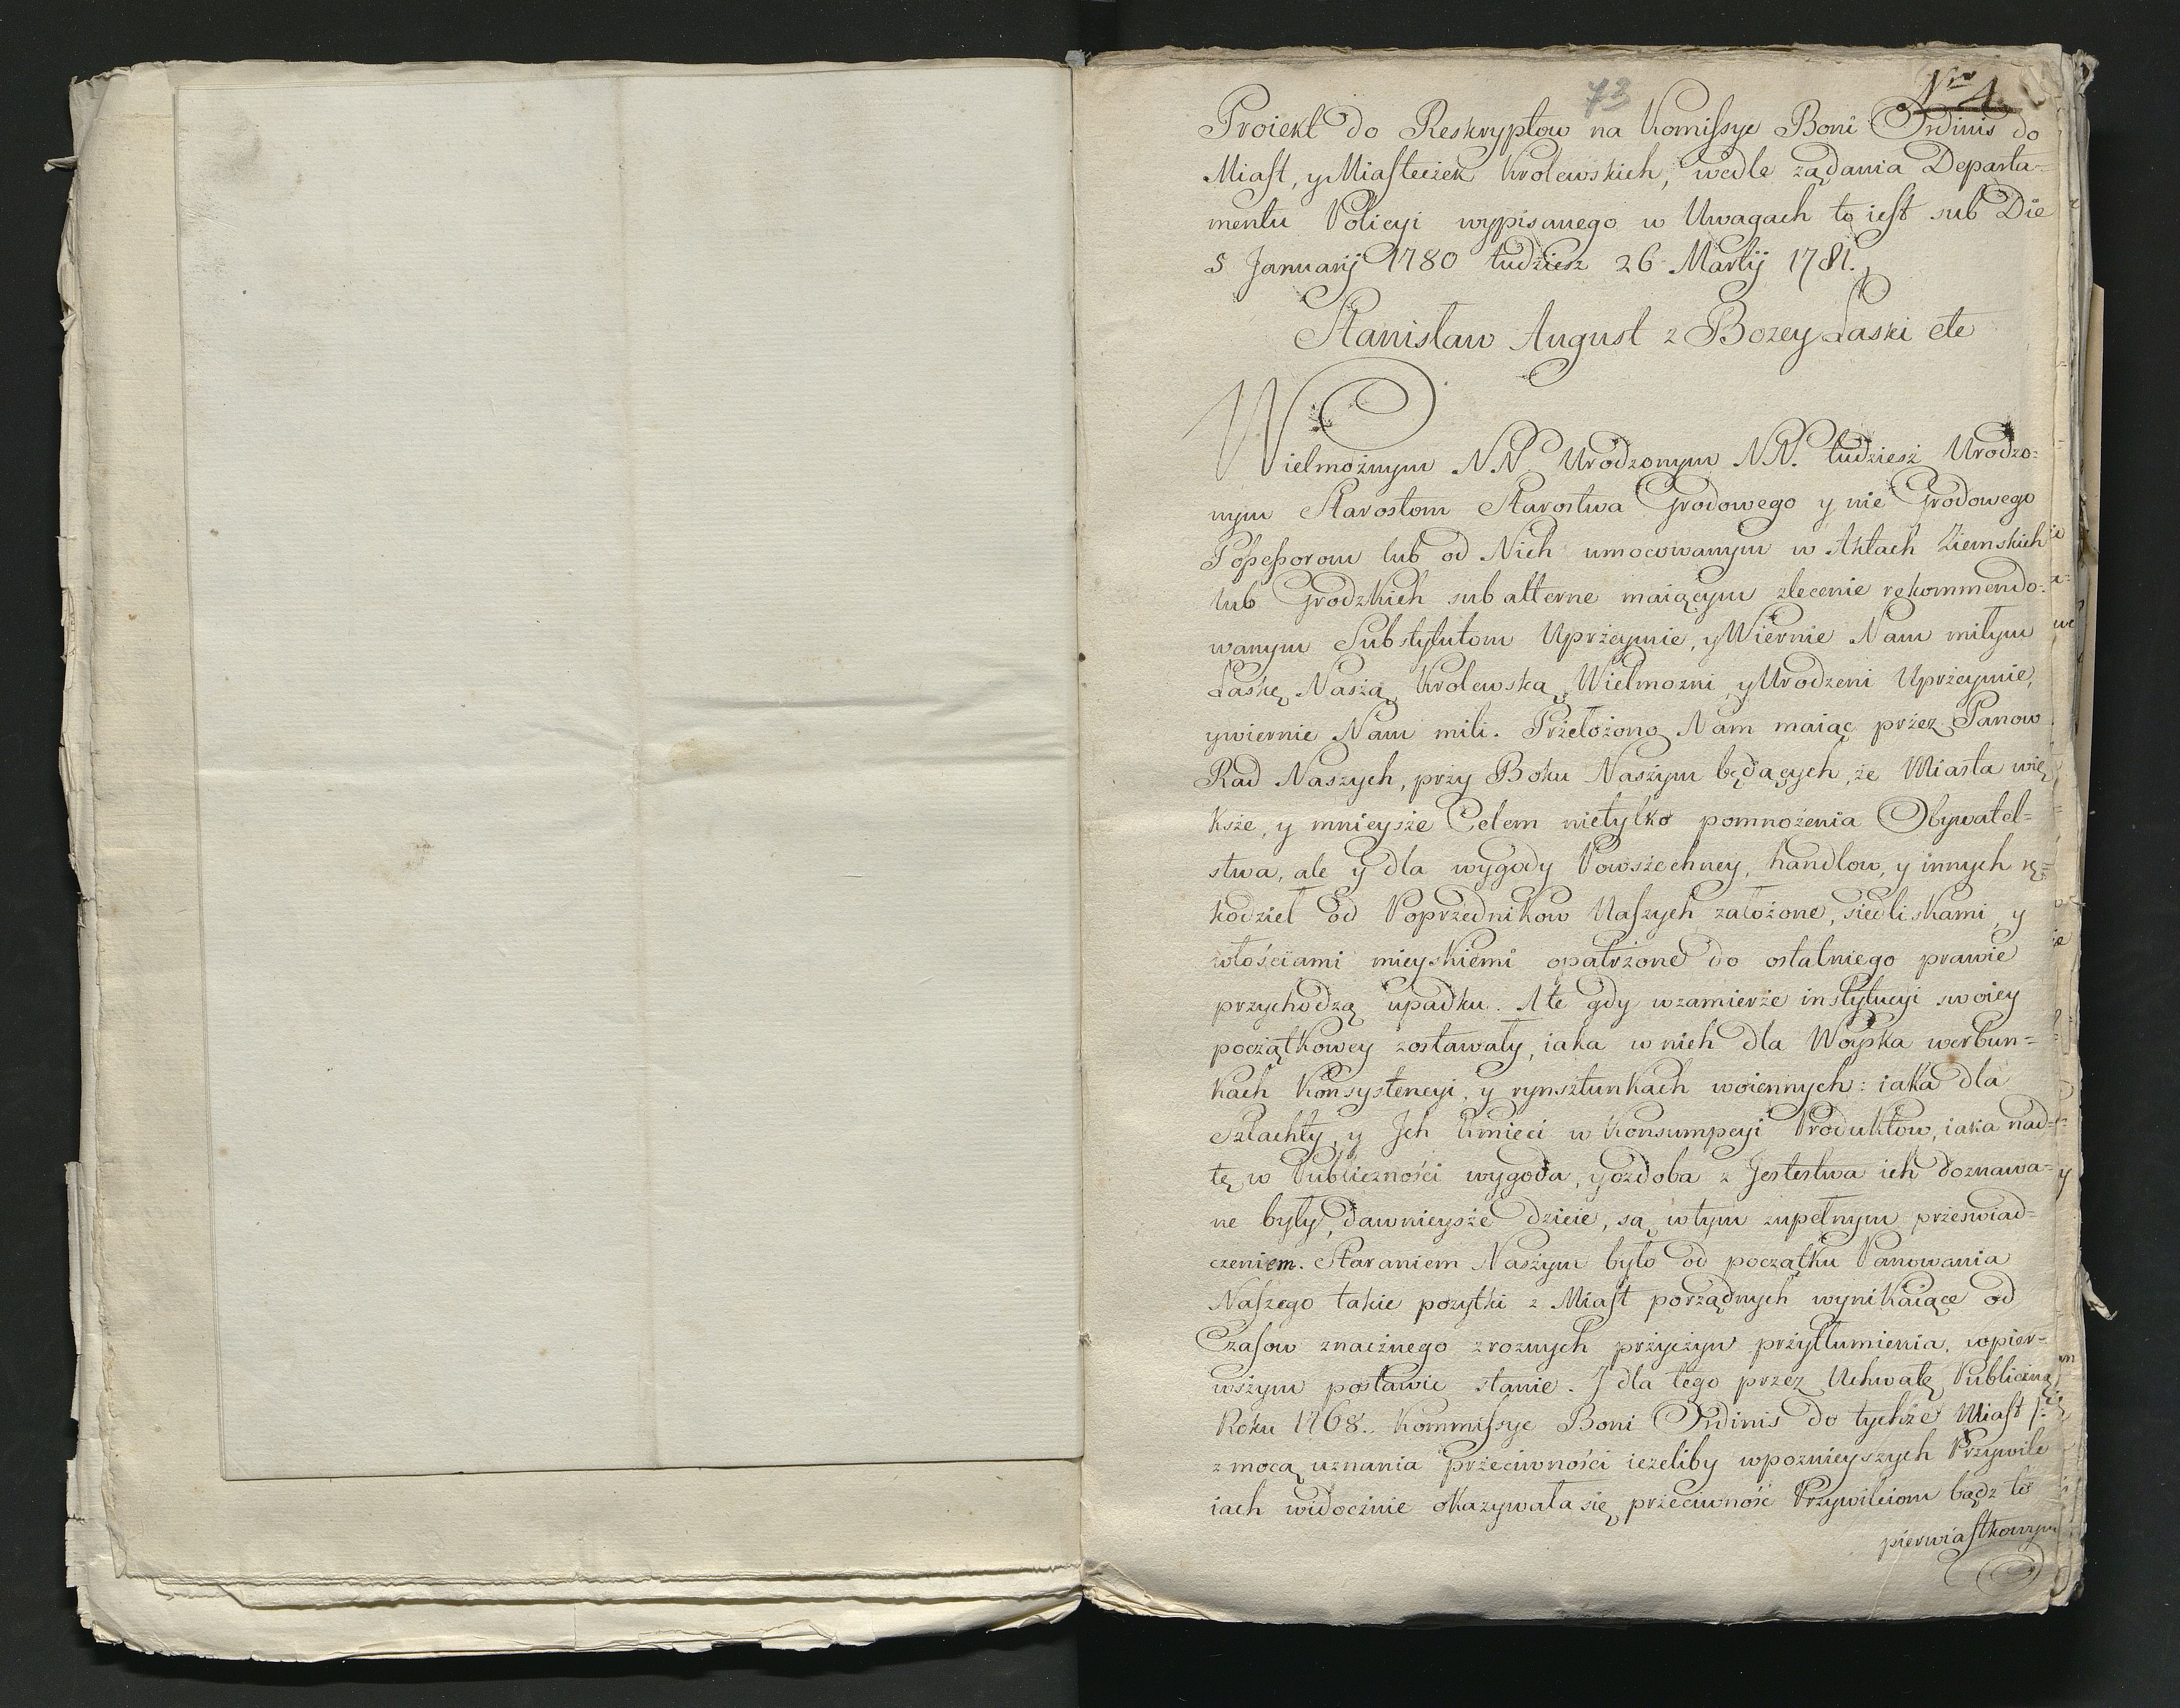 73
Nro 1.
Proiekt do Reskryptow na Komissye Boni Ordinis do
Miast, y Miasteczek Krolewskich, wedle ządania Departa=
mentu Policyi wypisanego w Uwagach to iest sub Die
5 Januarij 1780 tudziesz 26 Martij 1781.
Stanisław August z Bozey Łaski etc
Wielmożnym NN Urodzonym NN. tudziesż Urodzo=
nym Starostom Starostwa Grodowego y nie Grodowego
Possessorom lub od Nich umocowanym w Aktach Ziemskich
lub Grodzkich sub altterne maiącym zlecenie rekommendo=
wanym Substytutom Uprzeymie, y Wiernie Nam miłym
Łaskę Naszą Krolewską, Wielmozni, y Urodzeni Uprzeymie,
y wiernie Nam mili. Przełożono Nam maiąc przez Panow
Rad Naszych, przy Boku Naszym będących, że Miasta wię
ksże, y mnieysże Celem nietylko pomnożenia Obywatel=
stwa, ale y dla wygody Powszechney, handlow, y innych rę=
kodzieł od Poprzednikow Naszych założone, siedliskami, y
włościami mieyskiemi opatrzone do ostatniego prawie
przychodzą upadku. A te gdy w zamierze instytucyi swoiey
początkowey zostawały, iaka w nich dla Woyska werbun=
kach Konsystencyi, y rynsztunkach woiennych: iaka dla
Szlachty, y Jch Kmieci w Konsumpcyi Produktow, iaka nad=
tę w Publiczności wygoda, y ozdoba z Jestestwa ich doznawa=
ne były, dawnieysże dzieie, są w tym zupełnym przeswiad=
czeniem. Staraniem Naszym było od początku Panowania
Naszego takie pozytki z Miast porządnych wynikaiące od
Czasow znacznego z roznych przyczyn przytłumienia, w pier=
wszym postawic stanie. J dla tego przez Uchwałę Publiczną
Roku 1768. Kommissye Boni Ordinis do tychże Miast /:
z mocą uznania przeciwności iezeliby w poznieyszych Przywile
iach widocznie okazywała się przeciwność Przywileiom bądz to
pierwiastkowym